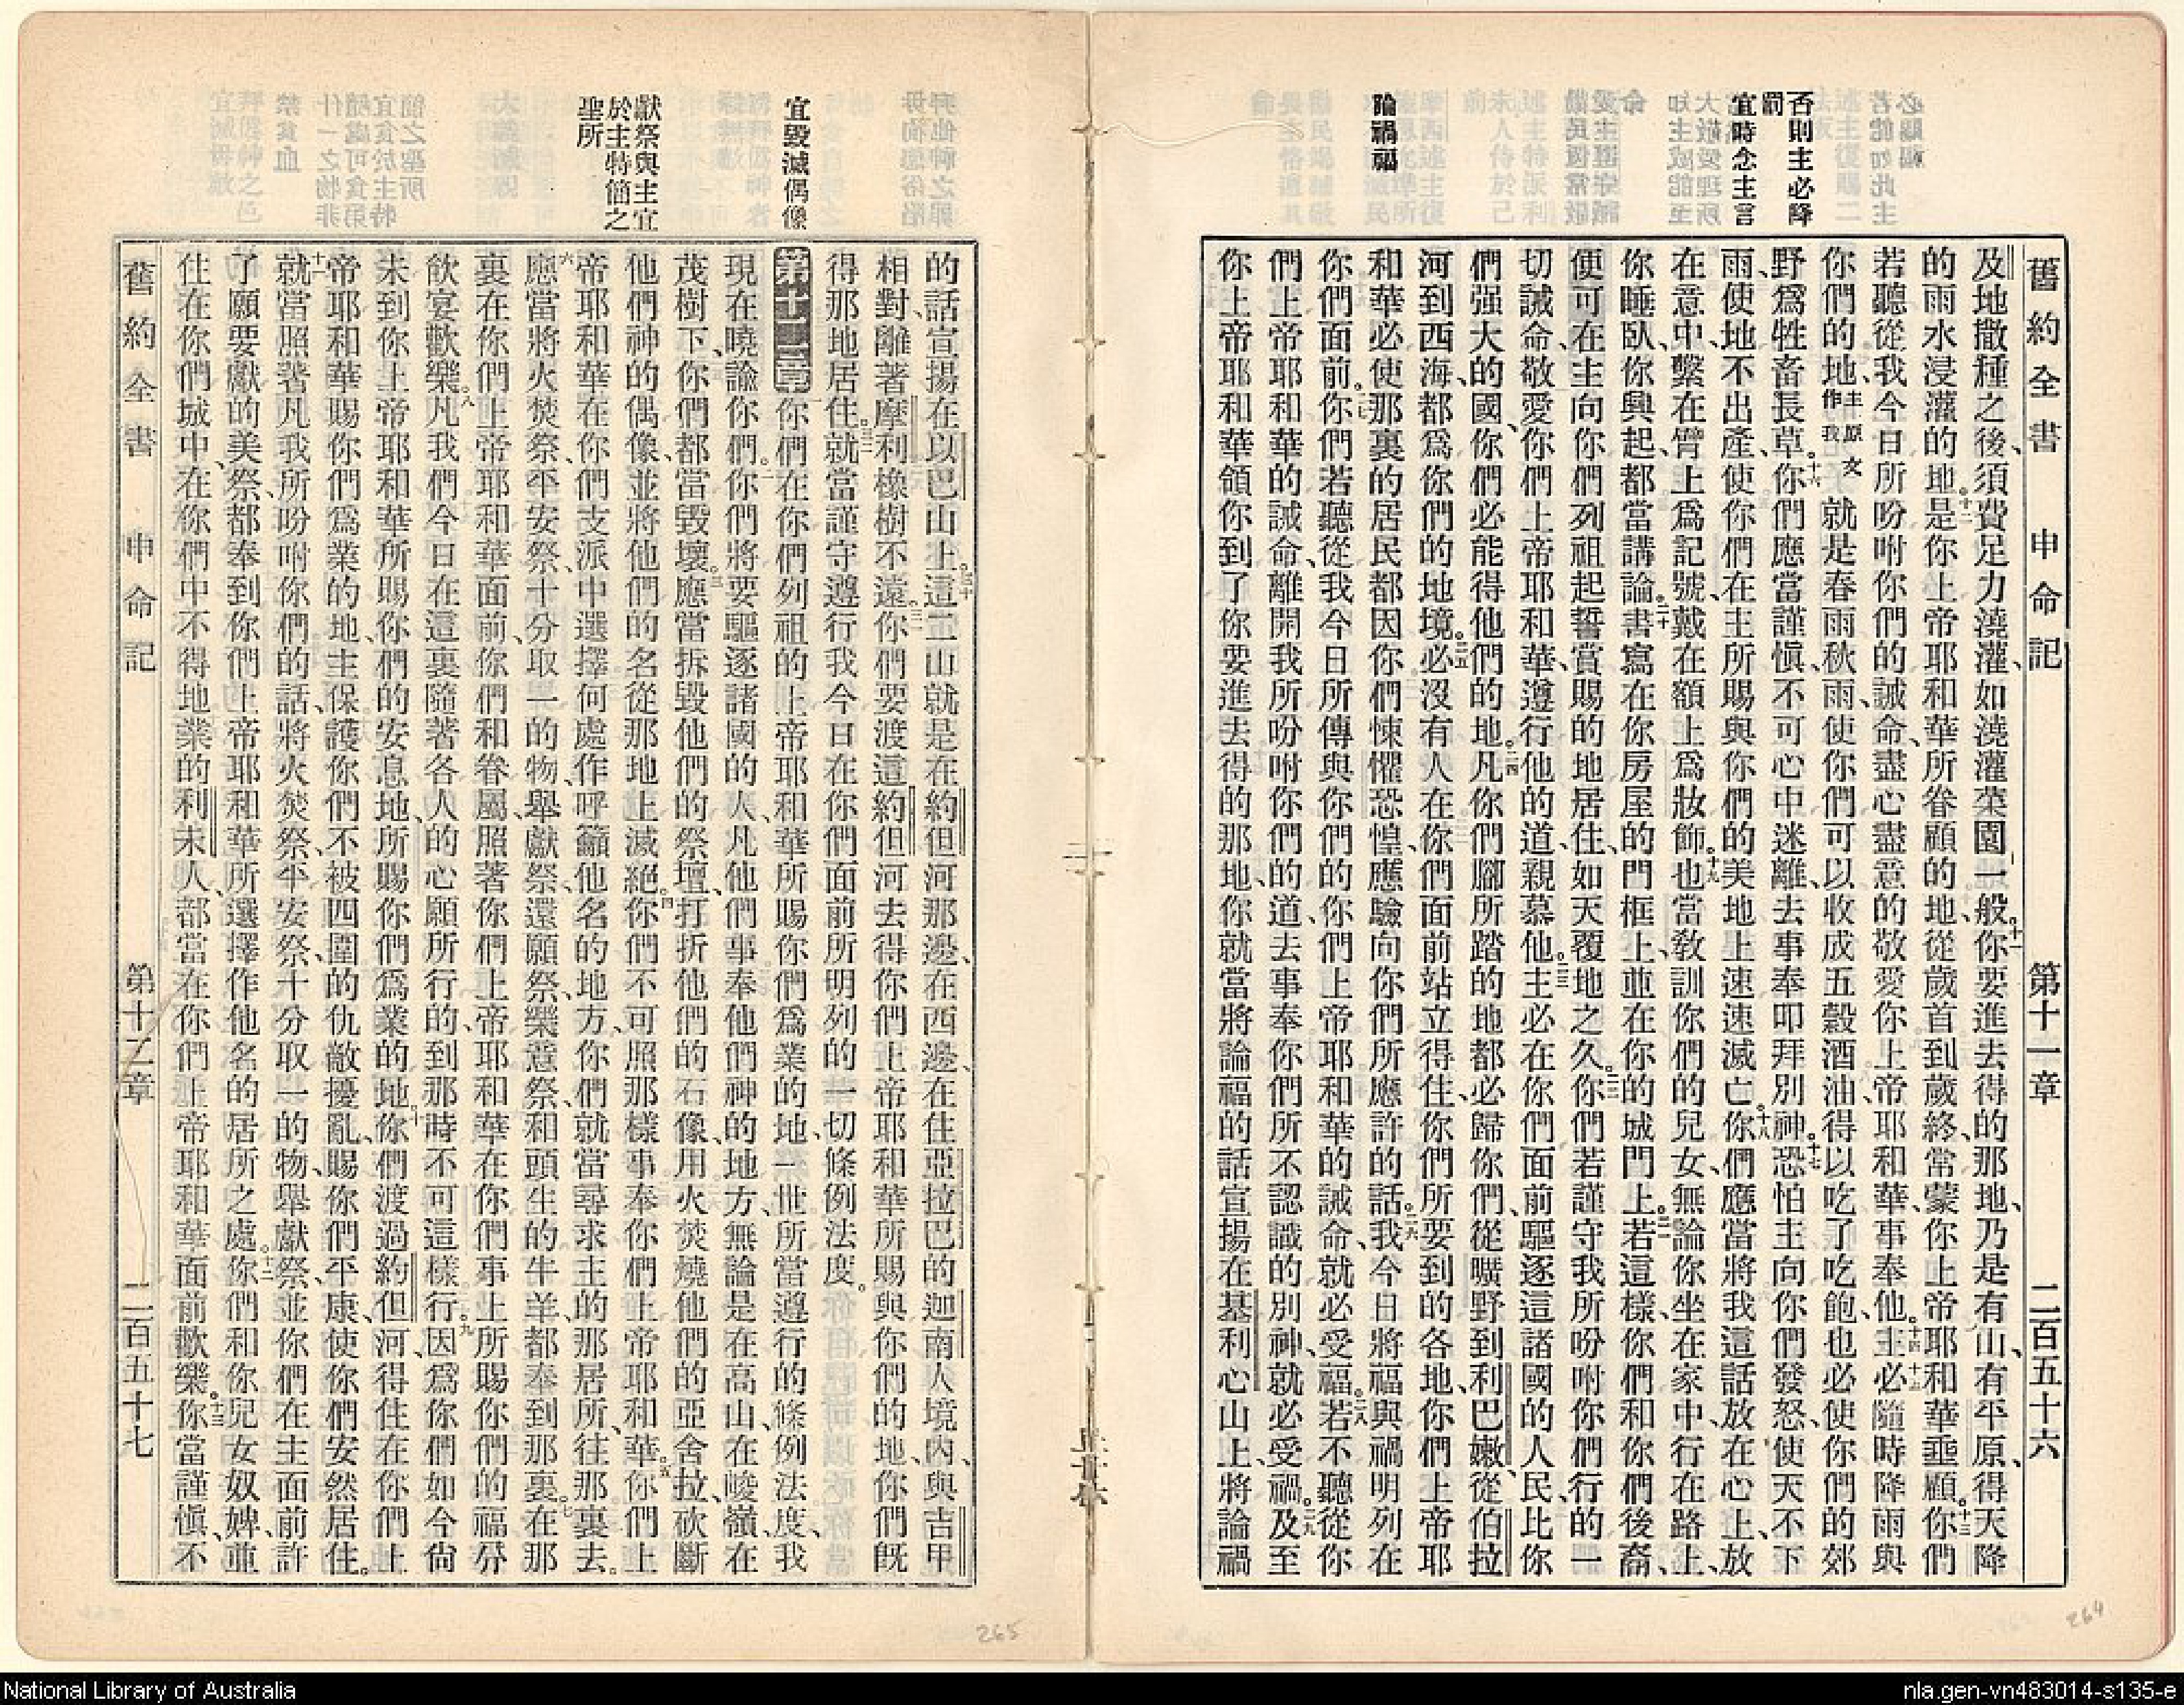 舊約全書 申命記 第十一章 二百五十六
否則主必降
罰
宜時念主言
論禍福
及地撒種之後、須費足力澆灌、如澆灌菜園一般。十一你要進去得的那地、乃是有山、有平原、得天降
的雨水浸灌的地。十二是你上帝耶和華所眷顧的地、從歲首到歲終、常蒙你上帝耶和華垂顧。十三你們
若聽從我今日所吩咐你們的誡命、盡心盡意的敬愛你上帝耶和華、事奉他。十四主必隨時降雨與
你們的地、主原文作我就是春雨秋雨、使你們可以收成五穀酒油、十五得以吃了吃飽、也必使你們的郊
野爲牲畜長草。十六你們應當謹愼、不可心中迷離、去事奉叩拜別神。十七恐怕主向你們發怒、使天不下
雨、使地不出產、使你們在主所賜與你們的美地上速速滅亡。十八你們應當將我這話放在心上、放
在意中、繫在臂上爲記號、戴在額上爲妝飾。十九也當敎訓你們的兒女、無論你坐在家中、行在路上、
你睡臥、你興起、都當講論。二十書寫在你房屋的門框上、並在你的城門上。二一若這樣、你們和你們後裔、
便可在主向你們列祖起誓賞賜的地居住、如天覆地之久。二二你們若謹守我所吩咐你們行的一
切誡命、敬愛你們上帝耶和華、遵行他的道、親慕他。二三主必在你們面前驅逐這諸國的人民、比你
們强大的國、你們必能得他們的地。二四凡你們腳所踏的地都必歸你們、從曠野到利巴嫩、從伯拉
河到西海、都爲你們的地境。二五必沒有人在你們面前站立得住、你們所要到的各地、你們上帝耶
和華必使那裏的居民都因你們悚懼恐惶、應驗向你們所應許的話。二六我今日將福與禍明列在
你們面前。二七你們若聽從我今日所傳與你們的你們上帝耶和華的誡命、就必受福。二八若不聽從你
們上帝耶和華的誡命、離開我所吩咐你們的道、去事奉你們所不認識的別神、就必受禍。二九及至
你上帝耶和華領你到了你要進去得的那地、你就當將論福的話宣揚在基利心山上、將論禍
宜毀滅偶像
獻祭與主宜
於主特簡之
聖所
的話宣揚在以巴山上。三十這二山就是在約但河那邊、在西邊、在住亞拉巴的迦南人境內、與吉甲
相對、離著摩利橡樹不遠。三一你們要渡這約但河、去得你們上帝耶和華所賜與你們的地、你們旣
得那地居住。三二就當謹守遵行我今日在你們面前所明列的一切條例法度。
第十二章 一你們在你們列祖的上帝耶和華所賜你們爲業的地、一世所當遵行的條例法度、我
現在曉諭你們。二你們將要驅逐諸國的人、凡他們事奉他們神的地方、無論是在高山、在峻嶺、在
茂樹下、你們都當毀壞。三應當拆毀他們的祭壇、打折他們的石像、用火焚燒他們的亞舍拉、砍斷
他們神的偶像、並將他們的名從那地上滅絕。四你們不可照那樣事奉你們上帝耶和華。五你們上
帝耶和華在你們支派中選擇何處作呼籲他名的地方、你們就當尋求主的那居所、往那裏去。
六應當將火焚祭、平安祭、十分取一的物、舉獻祭、還願祭、樂意祭、和頭生的牛羊、都奉到那裏。七在那
裏在你們上帝耶和華面前、你們和眷屬、照著你們上帝耶和華在你們事上所賜你們的福分
飲宴歡樂。八凡我們今日在這裏隨著各人的心願所行的、到那時不可這樣行。九因爲你們如今尙
未到你上帝耶和華所賜你們的安息地、所賜你們爲業的地。十你們渡過約但河、得住在你們上
帝耶和華賜你們爲業的地、主保護你們不被四圍的仇敵擾亂、賜你們平康、使你們安然居住。
十一就當照著凡我所吩咐你們的話、將火焚祭、平安祭、十分取一的物、舉獻祭、並你們在主面前許
了願要獻的美祭、都奉到你們上帝耶和華所選擇作他名的居所之處。十二你們和你兒女奴婢、並
住在你們城中、在你們中不得地業的利未人、都當在你們上帝耶和華面前歡樂。十三你當謹愼、不
舊約全書 申命記 第十二章 二百五十七
264
265
National Library of Australia
nla.gen-vn483014-s135-e